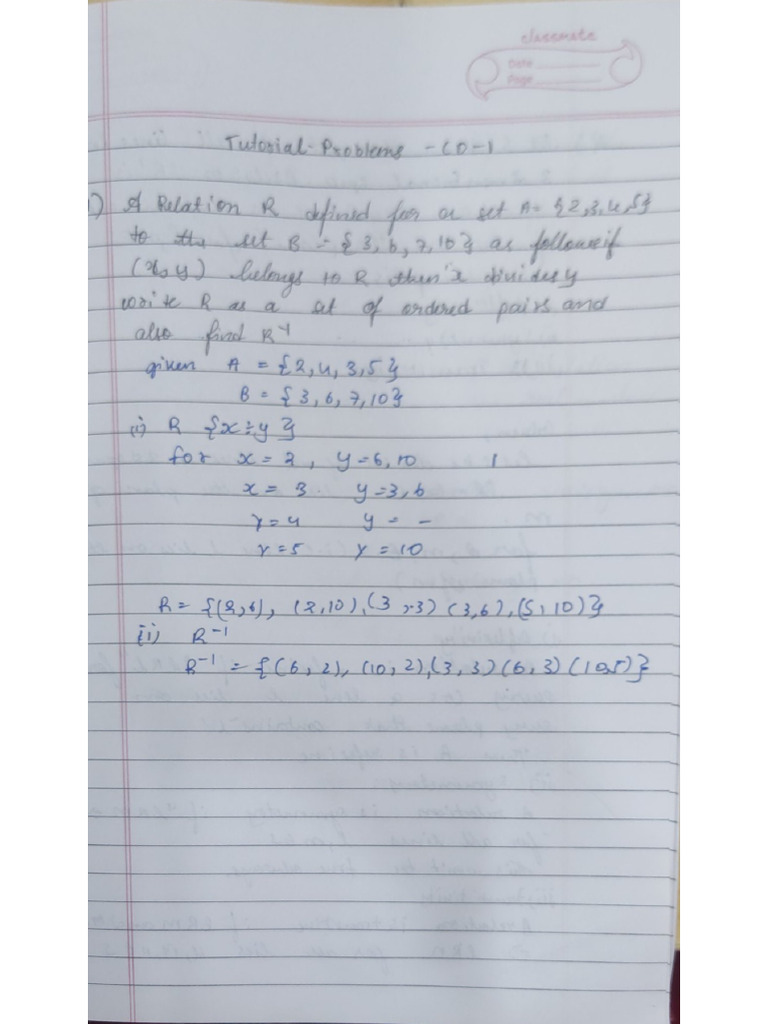 classmate
Date
Page
Tutorial-Problems - CO-1
1) A Relation R defined for a set A= {2,3,4,5}
to the set B = {3, 6, 7, 10} as follows if
(x,y) belongs to R then x divides y
write R as a set of ordered pairs and
also find R-1
given A = {2, 4, 3, 5}
B = {3, 6, 7, 10}
(i) R {x÷y}
for x = 2, y=6, 10
x = 3 y=3, 6
x=4 y = -
x=5 y = 10
R= {(2,6), (2,10), (3,3) (3,6), (5,10)}
(ii) R-1
R-1 = {(6,2), (10,2), (3,3) (6,3) (10,5)}